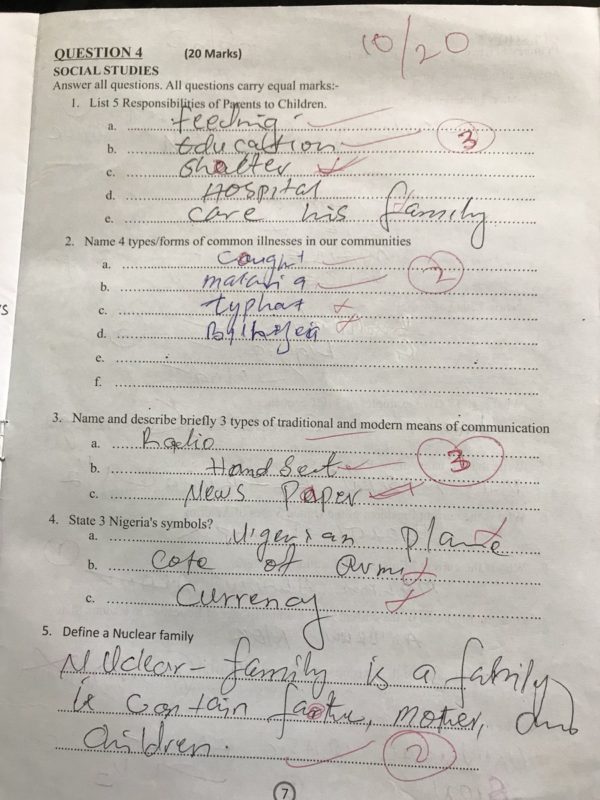 QUESTION 4 (20 Marks) 10/20
SOCIAL STUDIES
Answer all questions. All questions carry equal marks:-
1. List 5 Responsibilities of Parents to Children.
a. feeding
b. Educaltion 3
c. Shalter
d. Hospital
e. care his family
2. Name 4 types/forms of common illnesses in our communities
a. Cought 2
b. malaria
c. typhat
d.
e.
f.
3. Name and describe briefly 3 types of traditional and modern means of communication
a. Radio
b. Hand Set 3
c. News Paper
4. State 3 Nigeria's symbols?
a. Nigerian
b. Cote of Arms
c. Currency
5. Define a Nuclear family
Nuclear - family is a
is contain mother, and
children. 2
7